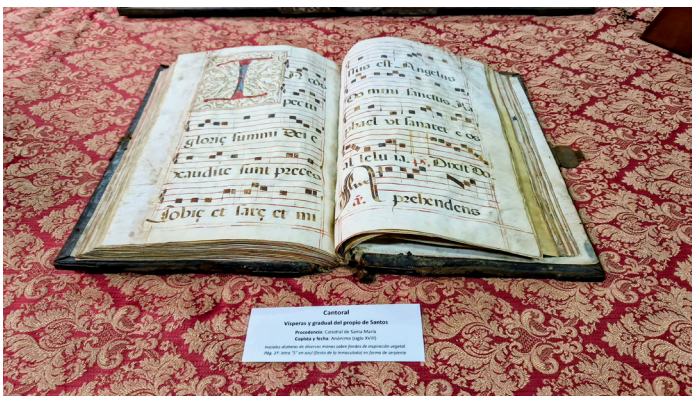 I
n con
pectu
glorię summi Dei e
xaudite sunt preces
Tobię et sarę et mi
ssus est Angelus
Do mini sanctus ra
phael vt sanaret e os
al lelu ia. ps. Dixit Do
A
prehendens
Cantoral
Vísperas y gradual del propio de Santos
Procedencia: Catedral de Santa María
Copista y fecha: Anónimo (siglo XVIII)
Iniciales alumnos de diversas manos sobre fondos de inspiración vegetal
Pág. 1ª: letra "S" en azul (fiesta de la Inmaculada) en forma de serpiente